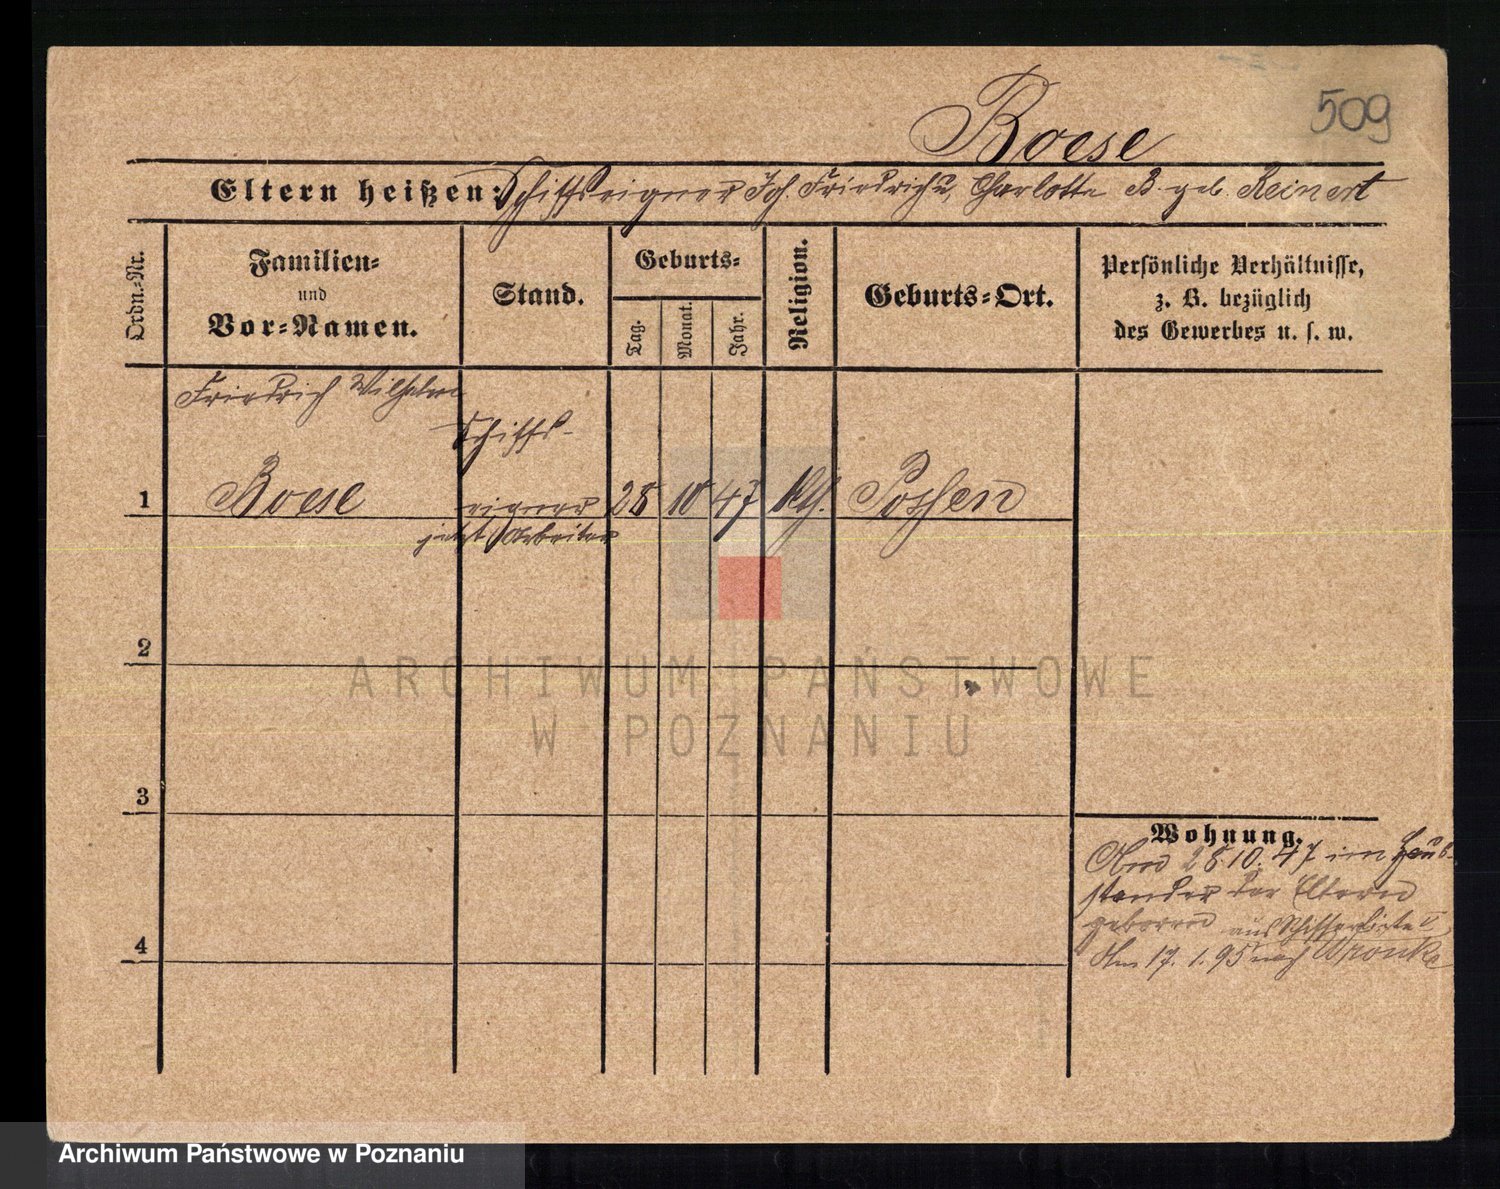 509
Boese
Eltern heißen: Schiffseigner Joh. Friedrich u, Charlotte B. geb. Reinert
Ordn.-Nr.
Familien-
und
Vor-Namen.
Stand.
Geburts-
Tag.
Monat.
Jahr.
Religion.
Geburts-Ort.
Persönliche Verhältnisse,
z. B. bezüglich
des Gewerbes u. s. w.
Friedrich Wilhelm
Schiffs-
1 Boese eigner 28 10 47 Posen
jetzt Arbeiter
2
ARCHIWUM PAŃSTWOWE
W POZNANIU
3
Wohnung.
Am 28.10.47 im Haus-
stande der Eltern
geboren aus Schifferliste
4
Am 17.1.95 nach Wronke
Archiwum Państwowe w Poznaniu